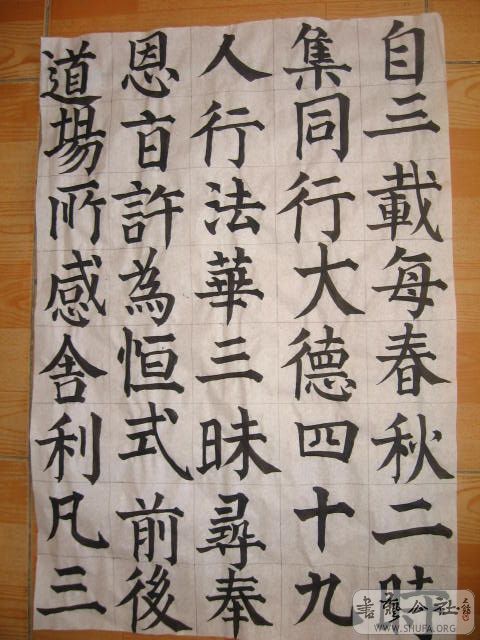 自三載每春秋二時
集同行大德四十九
人行法華三昧尋奉
恩旨許為恒式前後
道場所感舍利凡三
書藝公社
WWW.SHUFA.ORG